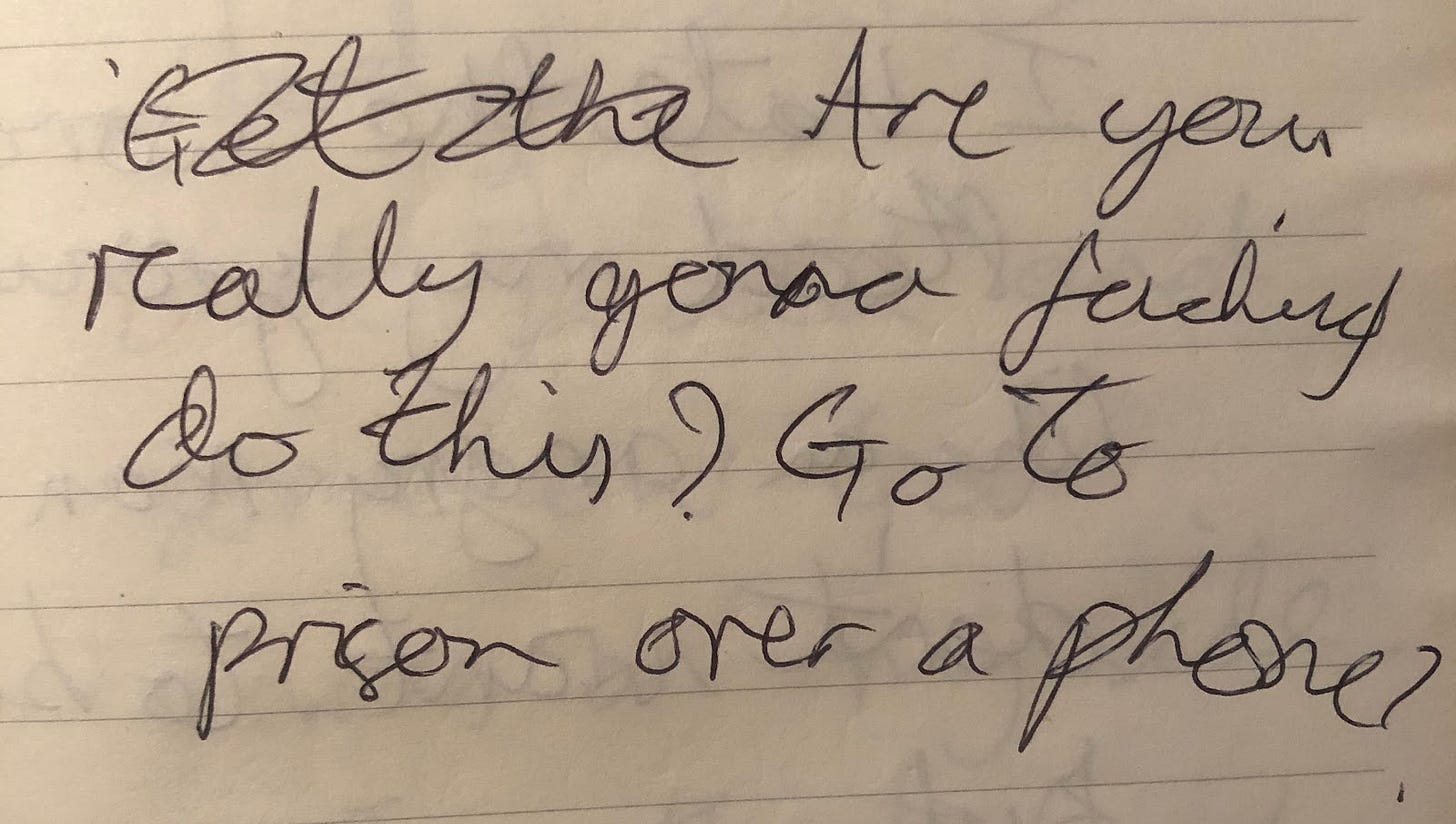 Get the Are you
really gonna fucking
do this? Go to
prison over a phone?